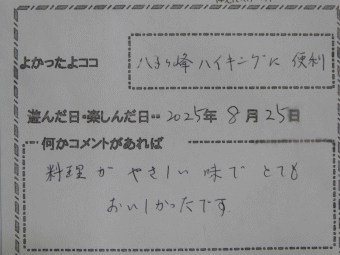 よかったよココ 八子ヶ峰ハイキングに 便利
遊んだ日・楽しんだ日・・ 2025年 8月 25日
何かコメントがあれば
料理が やさしい 味で とても
おいしかったです